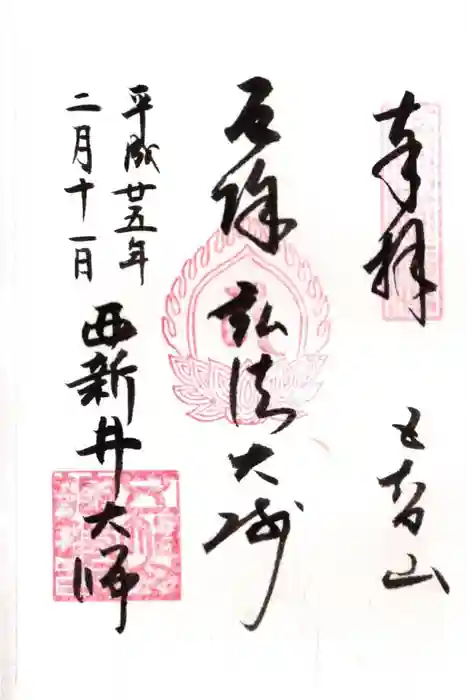 奉拝
五智山
厄除弘法大師
平成廿五年
二月十一日
西新井大師